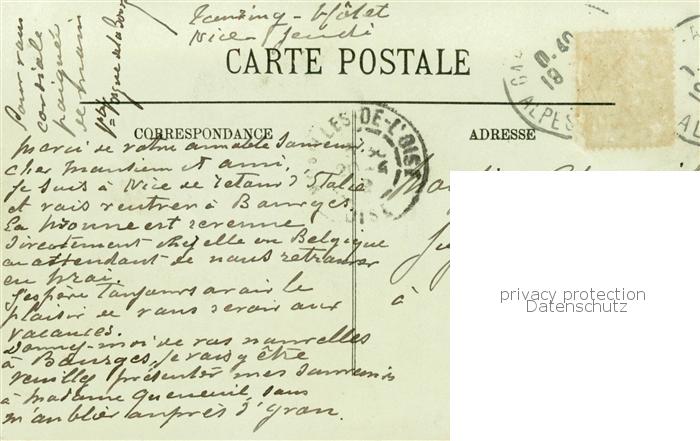 Touring-Hôtel
Nice Jeudi
CARTE POSTALE
CORRESPONDANCE
ADRESSE
merci de votre aimable souvenir,
cher monsieur et ami,
je suis à Nice de retour d'Italie
et vais rentrer à Bourges.
La est revenue
directement chez elle en Belgique
en attendant de nous retrouver
en
J'espère toujours avoir le
plaisir de vous revoir aux
vacances.
Donnez-moi de vos nouvelles
à Bourges, je vais y être
veuillez présenter mes souvenirs
à madame Queneuil, sans
m'oublier auprès d'
Pour vous
cordiale
poignée
de main
LLES-DE-L'OISE
OISE
ALPES
à
privacy protection
Datenschutz